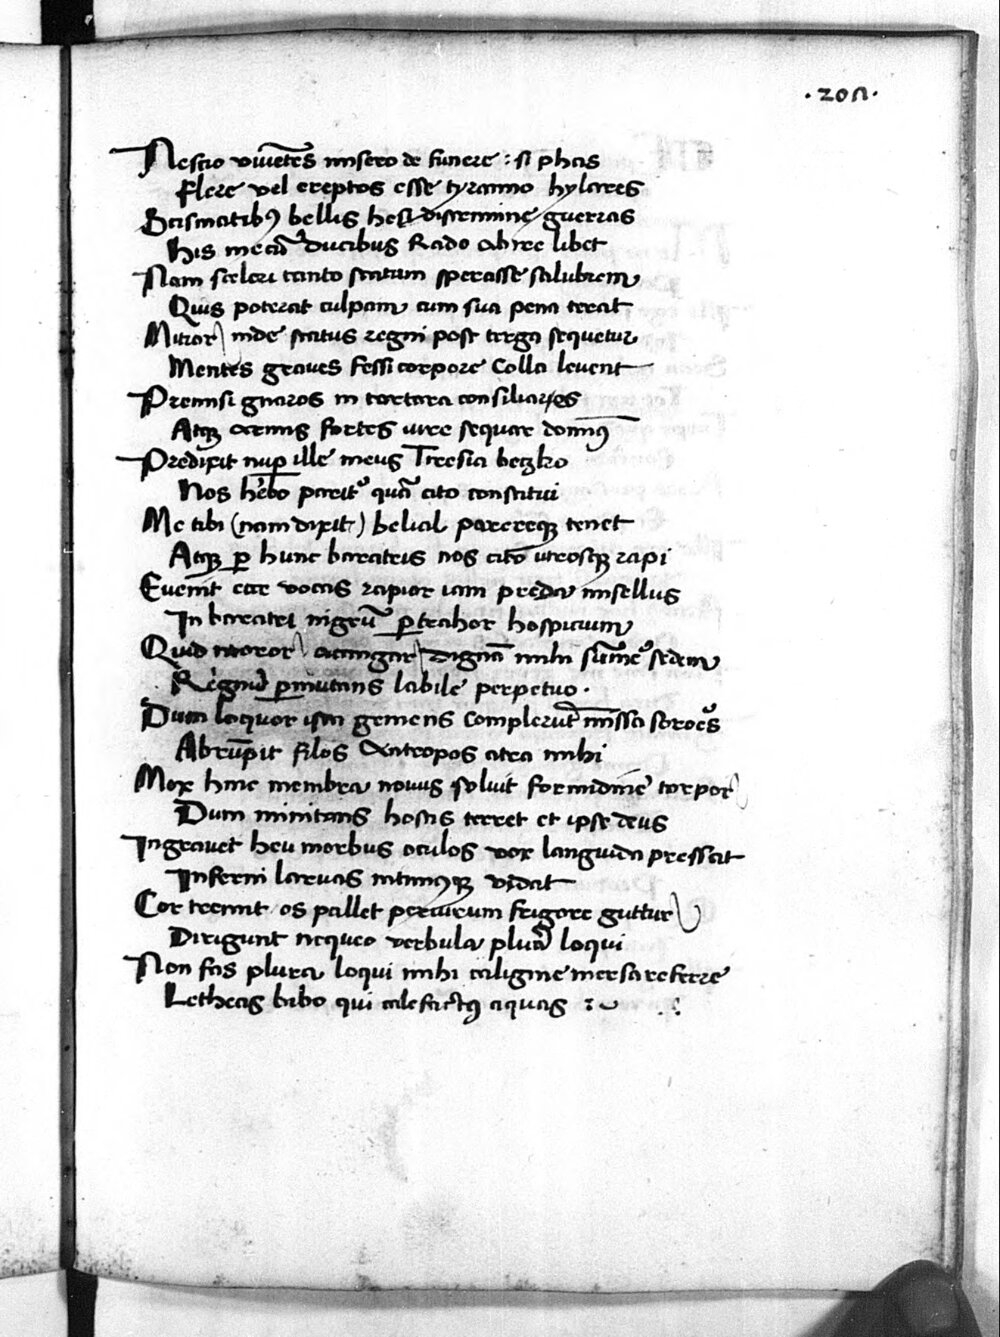 ·201·
Nescio viuẽtes misero de funere : si phas
Flere vel ereptos esse tyranno hylares
Scismatibꝰ bellis hesi discrimine guerras
His mecũ ducibus Rado abire libet
Nam sceleri tanto statum sperasse salubrem
Quis poterat culpam cum sua pena terat
Mitior inde status regni post terga sequetur
Mentes graues fessi corpore Colla leuent
Premisi gnaros in tartara consiliarios
Atqꝫ armis fortes uire sequar domĩꝰ
Predixit nuꝑ ille meus Tiresia beczko
Nos hẽbo parit᷒ quã cito constitui
Me tibi (nam dixit) belial parereqꝫ tenet
Atqꝫ ꝑ hunc baratris nos cito utrosqꝫ rapi
Euenit ear vocas rapior iam preda misellus
In baratri nigrũ ꝑtrahor hospicium
Quid moror attingar dignã mihi sũme sedem
Regnũ ꝑmutans labile perpetuo ·
Dum loquor ista gemens Complerũt missa sorores
Abrũpit filos Antropos atra mihi
Mox hinc membra nouus soluit formidine torpor
Dum minitans hostis terret et ipse deus
Ingrauet heu morbus oculos vox languida pressat
Inferni laruas intimꝰqꝫ vidat
Cor tremit os pallet perdirum frigore guttur
Dirigunt nequeo verbula plura loqui
Non fas plura loqui mihi caligine mersa referre
Letheas bibo qui calefactꝰ aquas